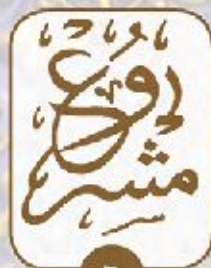 مشروع